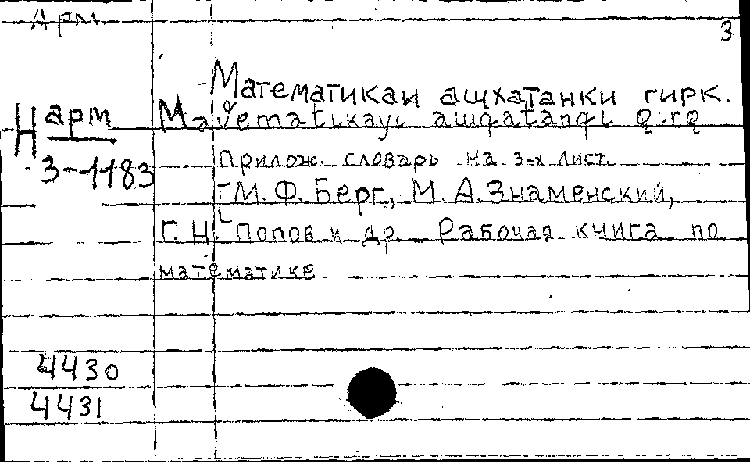 Арм
3
Математикаи ашхатанки гирк.
Н арм
3-1183
Прилож. словарь на 3-х лист.
[М. Ф. Берг, М. А. Знаменский,
Г. Н. Попов и др. Рабочая книга по
математике
4430
4431